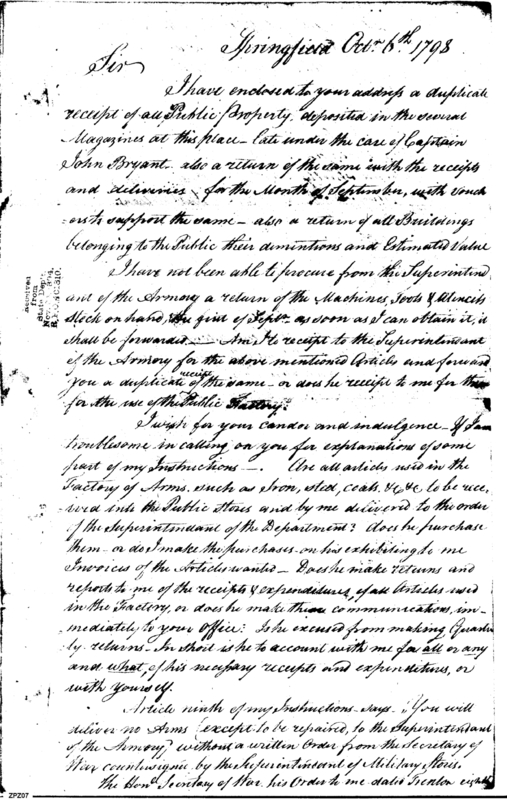 Springfield Octr 6th 1798
Sir
I have enclosed to your address a duplicate
receipt of all Public Property deposited in the several
Magazines at this place - late under the care of Captain
John Bryant also a return of the same with the receipts
and deliveries for the Month of September, with vouch
ers to support the same - also a return of all Buildings
belonging to the Public their dimentions and Estimated Value
I have not been able to procure from the Superintend
ant of the Armory a return of the Machines, Tools & Utincils
Stock on hand, the first of Septr as soon as I can obtain it, it
shall be forwarded. - Am I to receipt to the Superintendant
of the Armory for the above mentioned Articles and forward
you a duplicate receipt of the same - or does he receipt to me for them
for the use of the Public Factory?
I wish for your candor and indulgence - If I am
troublesome in calling on you for explanations of some
part of my Instructions -. Are all articles used in the
Factory of Arms. such as Iron, steel, coals, &c &c to be rece,
ived into the Public Stores and by me delivered to the order
of the Superintendant of the Department? does he purchase
them - or do I make the purchases on his exhibiting to me
Invoices of the Articles wanted - Does he make returns and
reports to me of the receipts & expenditures, of all Articles used
in the Factory, or does he make these communications, im-
mediately to your Office? Is he excused from making Quarter
ly returns - In short is he to account with me for all or any
and what, of his necessary receipts and expenditures, or
with yourself.
Article ninth of my Instructions says - "You will
deliver no Arms (except to be repaired, to the Superintendant
of the Armory) without a written Order from the Secretary of
War countersigned by the Superintendant of Military Stores.
The Honl Secretary of War his Order to me dated Trenton eighth
Received
from
State Dept.
ZPZ07